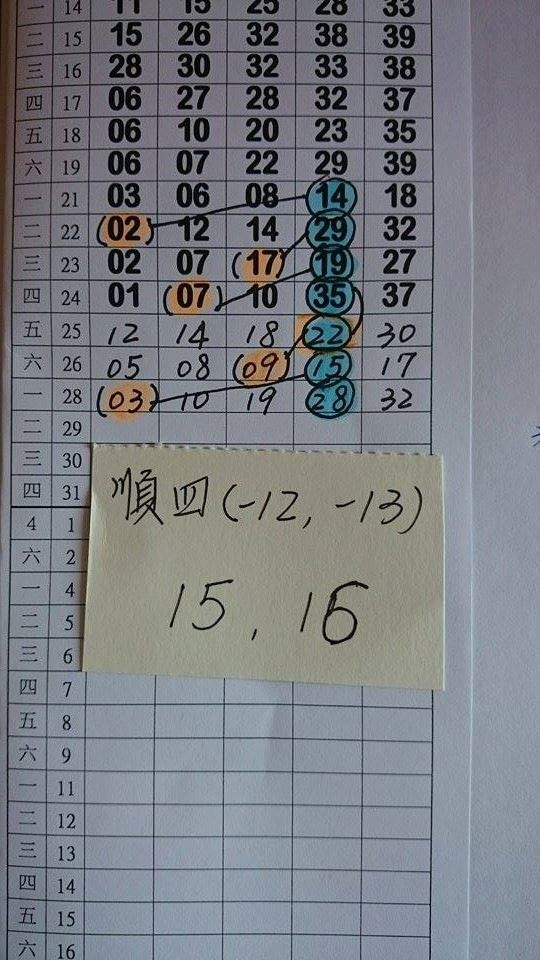 一 14 11 15 25 28 33
二 15 15 26 32 38 39
三 16 28 30 32 33 38
四 17 06 27 28 32 37
五 18 06 10 20 23 35
六 19 06 07 22 29 39
一 21 03 06 08 14 18
二 22 (02) 12 14 29 32
三 23 02 07 (17) 19 27
四 24 01 (07) 10 35 37
五 25 12 14 18 22 30
六 26 05 08 (09) 15 17
一 28 (03) 10 19 28 32
二 29
三 30
四 31
順四(-12, -13)
15, 16
4 1
六 2
一 4
二 5
三 6
四 7
五 8
六 9
一 11
二 12
三 13
四 14
五 15
六 16